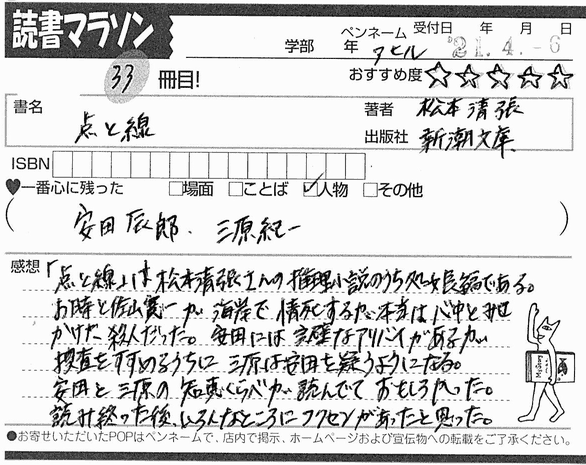 読書マラソン
学部 年 ペンネーム アヒル 受付日 年 月 日
'21.4.-6
33 冊目!
おすすめ度 ☆☆☆☆☆
書名 点と線
著者 松本清張
出版社 新潮文庫
ISBN
♥一番心に残った □場面 □ことば ☑人物 □その他
( 安田辰郎、三原紀一 )
感想 「点と線」は松本清張さんの推理小説のうち処女長編である。
お時と佐山憲一が海岸で情死するが本当は心中と見せ
かけた殺人だった。安田には完璧なアリバイがあるが
捜査をすすめるうちに三原は安田を疑うようになる。
安田と三原の知恵くらべが読んでておもしろかった。
読み終った後、いろんなところにフクセンがあったと思った。
●お寄せいただいたPOPはペンネームで、店内で掲示、ホームページおよび宣伝物への転載をご了承ください。